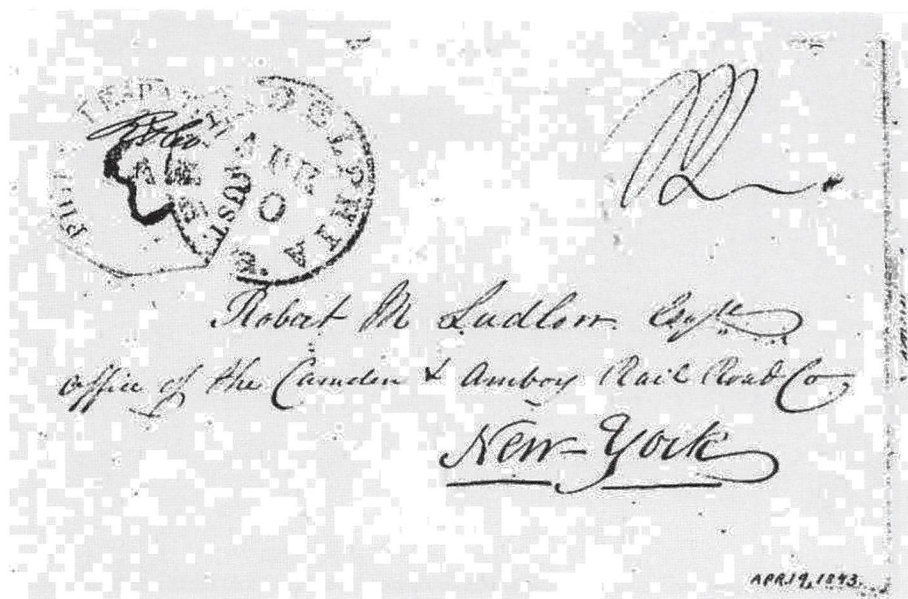 PHILADELPHIA
APR
POST.
Robert M Ludlow Esqre
office of the Camden & Amboy Rail Road Co
New-York
APR 19, 1843.